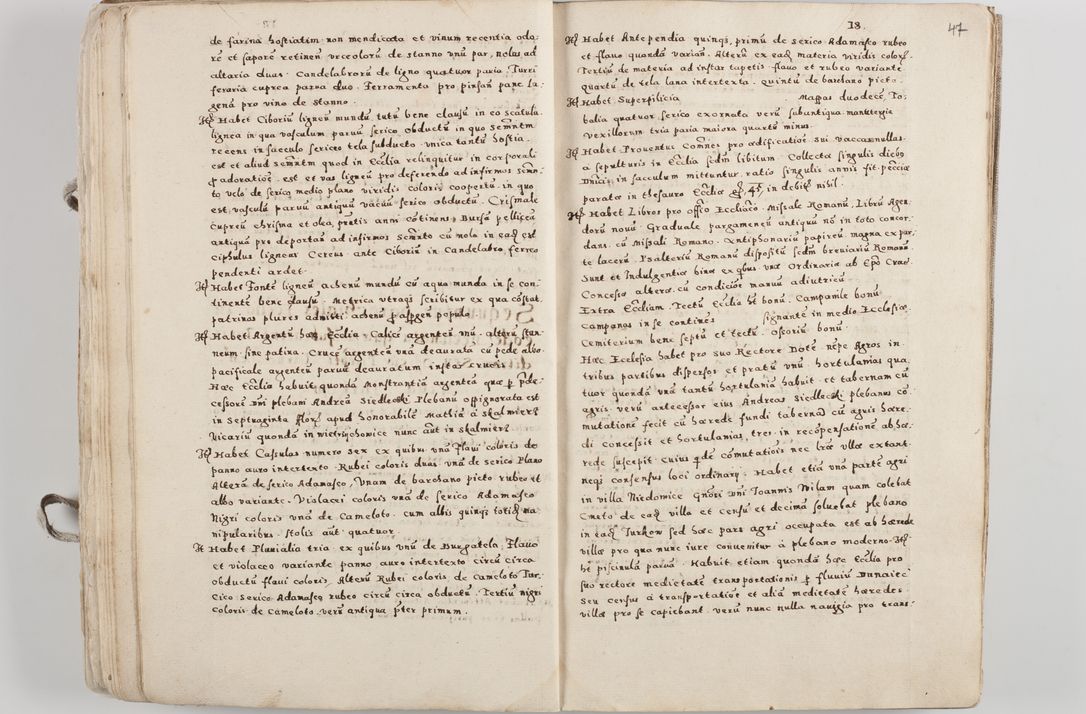 de farina hostiatim non mendicata et vinum recentia odo-
re et sapore retinen̄ vrceolorū de stanno vnū par, nolas ad
altaria duas. Candelabrorū de ligno quatuor paria, Turri
feraria cuprea parua duo. Ferramenta pro pinsan̄ pane La-
genā pro vino de stanno.
Itē Habet Ciboriū ligneū mundū tutū bene clausū in eo scatula
lignea in qua vasculum paruū serico obductū in quo Sacrm̄tm
recens in sacculo sericeo tela subducto. vnica tantū hostia.
est et aliud sacrm̄tm quod in Ecclīa relinquitur in corporali
p adoratioē. est et vas ligneū pro deferendo ad infirmos sacrm̄-
to velo de serico medio plane viridis coloris coopertū. in quo
est vasculū paruū antiquū serico obductū. Crismale
cupreū chrisma et olea, pntis anni cōtinens, Bursa pellicea
antiqua pro deportan̄ ad infirmos Sacrm̄to cū nola in eadē est
cipsulus ligneus Cereus ante Ciboriū in Candelabro ferreo
pendenti ardet.
Itē Habet Fontē ligneū aehenū mundū cū aqua munda in se con-
tinentē bene clausū. Metrica vtraqȝ scribitur ex qua cōstat
patrinos plures admitti aehenū p aspgen̄ populo.
Itē Habet Argentū haec Ecclīa. Calicē argenteū vnū. alterū stan-
neum sine patina. Crucē argenteā vnā deauratā cū pede albo
pacificale argenteū paruū deauratum instar crucis.
Haec Ecclīa habuit quondā monstrantiā argenteā quae p prde-
cessorē Dni plebani Andreā Siedlecki Plebanū oppignorata est
in Septuaginta flor. apud honorabilē Mathiā à Skalmierz
Vicariū quondā in Wietrzychowice nunc aūt in Skalmierz
Itē Habet Casulas numero sex ex quibus vnā flaui coloris de
panno auro intertexto. Rubei coloris duas vnā de serico Plano
Alterā de serico Adamasco, Vnam de barchano picto rubeo et
albo variante. Violacei coloris vnā de serico Adamasco
Nigri coloris vnā de Cameloto. cum albis quinqȝ totidē ma-
nipularibus. Stolis aūt quatuor
Itē Habet Pluuialia tria ex quibus vnū de Burgatela, Flauo
et violaceo variante panno auro intertexto circū circa
obductū flaui coloris. Alterū Rubei coloris de Cameloto Tur-
cico Serico Adamasco rubeo circū circa obductū. Tertiū nigri
coloris de Cameloto. verū antiqua pter primum.
18. 47
Itē Habet Antependia quinqȝ, primū de serico Adamasco rubeo
et flauo quondā varian̄. Alterū ex eadē materia viridis coloris.
Tertiū de materia ad instar tapetis flauo et rubeo variante
quartū de tela lana intertexta. quintū de barchano picto.
Itē Habet Superpilicia Mappas duodecē, To-
balia quatuor serico exornata verū subantiqua. mantergia
vexillorum tria paria maiora quartū minus.
Itē Habet Prouentus Com̄nes pro aedificatioē sui vaccas nullas.
a sepulturis in Ecclīa scdm libitum. Collecta singulis dieb9
Dnicis in sacculum mittuntur. ratio singulis annis fit. pecūia
parata in thesauro Ecclīae 45, in debitis nihil.
Itē Habet Libros pro officio Ecclīaco. Missale Romanū, Librū Agen-
dorū nouū. Graduale pargameneū antiquū nō in toto concor-
dans cū Missali Romano. Antiphonariū papireū magna ex par-
te lacerū. Psalteriū Romanū dispositū scdm breuiariū Romanū
Sunt et Indulgentiae binae ex qbus vnae Ordinariae ab Epō Crac.
Concessae alterae cū condicioē manuū adiutricū.
Extra Ecclīam. Tectū Ecclīa ht bonū. Campanile bonū
Campanas in se continēs signante in medio Ecclesiae.
Cemiterium bene septū et tectū. Ossoriū bonū.
Haec Ecclesia habet pro suo Rectore Dotē nēpe Agros in
tribus partibus dispersos et pratū vnū hortulanias qua-
tuor quondā vnā tantū hortulaniā habuit et tabernam cū
agris verū antecessor eius Andreas Siedlecki plebanus cō-
mutationē fecit cū haerede fundi tabernā cū agris haere-
di concessit et hortulanias tres in recōpensationē ab hae-
rede suscepit cuius qdē cōmutatiois nec lrae vllae extant
neqȝ consensus loci ordinarij. Habet etiā vnā partē agri
in villa Niedomice Gnosi Dni Joannis Wilam quam colebat
Cmeto de eadē villa et censū et decimā soluebat plebano
in eadē Jurkow sed haec pars agri occupata est ab haerede
villae pro qua nunc iure conuenitur à plebano moderno. Itē
ht piscinulā paruā. Habuit etiam quondā haec Ecclīa pro
suo rectore medietatē transportationis p fluuiū Dunaiec
seu censūs à transportatioē et aliā medietatē haeredes
villae pro se capiebant. verū nunc nulla nauigia pro trans-